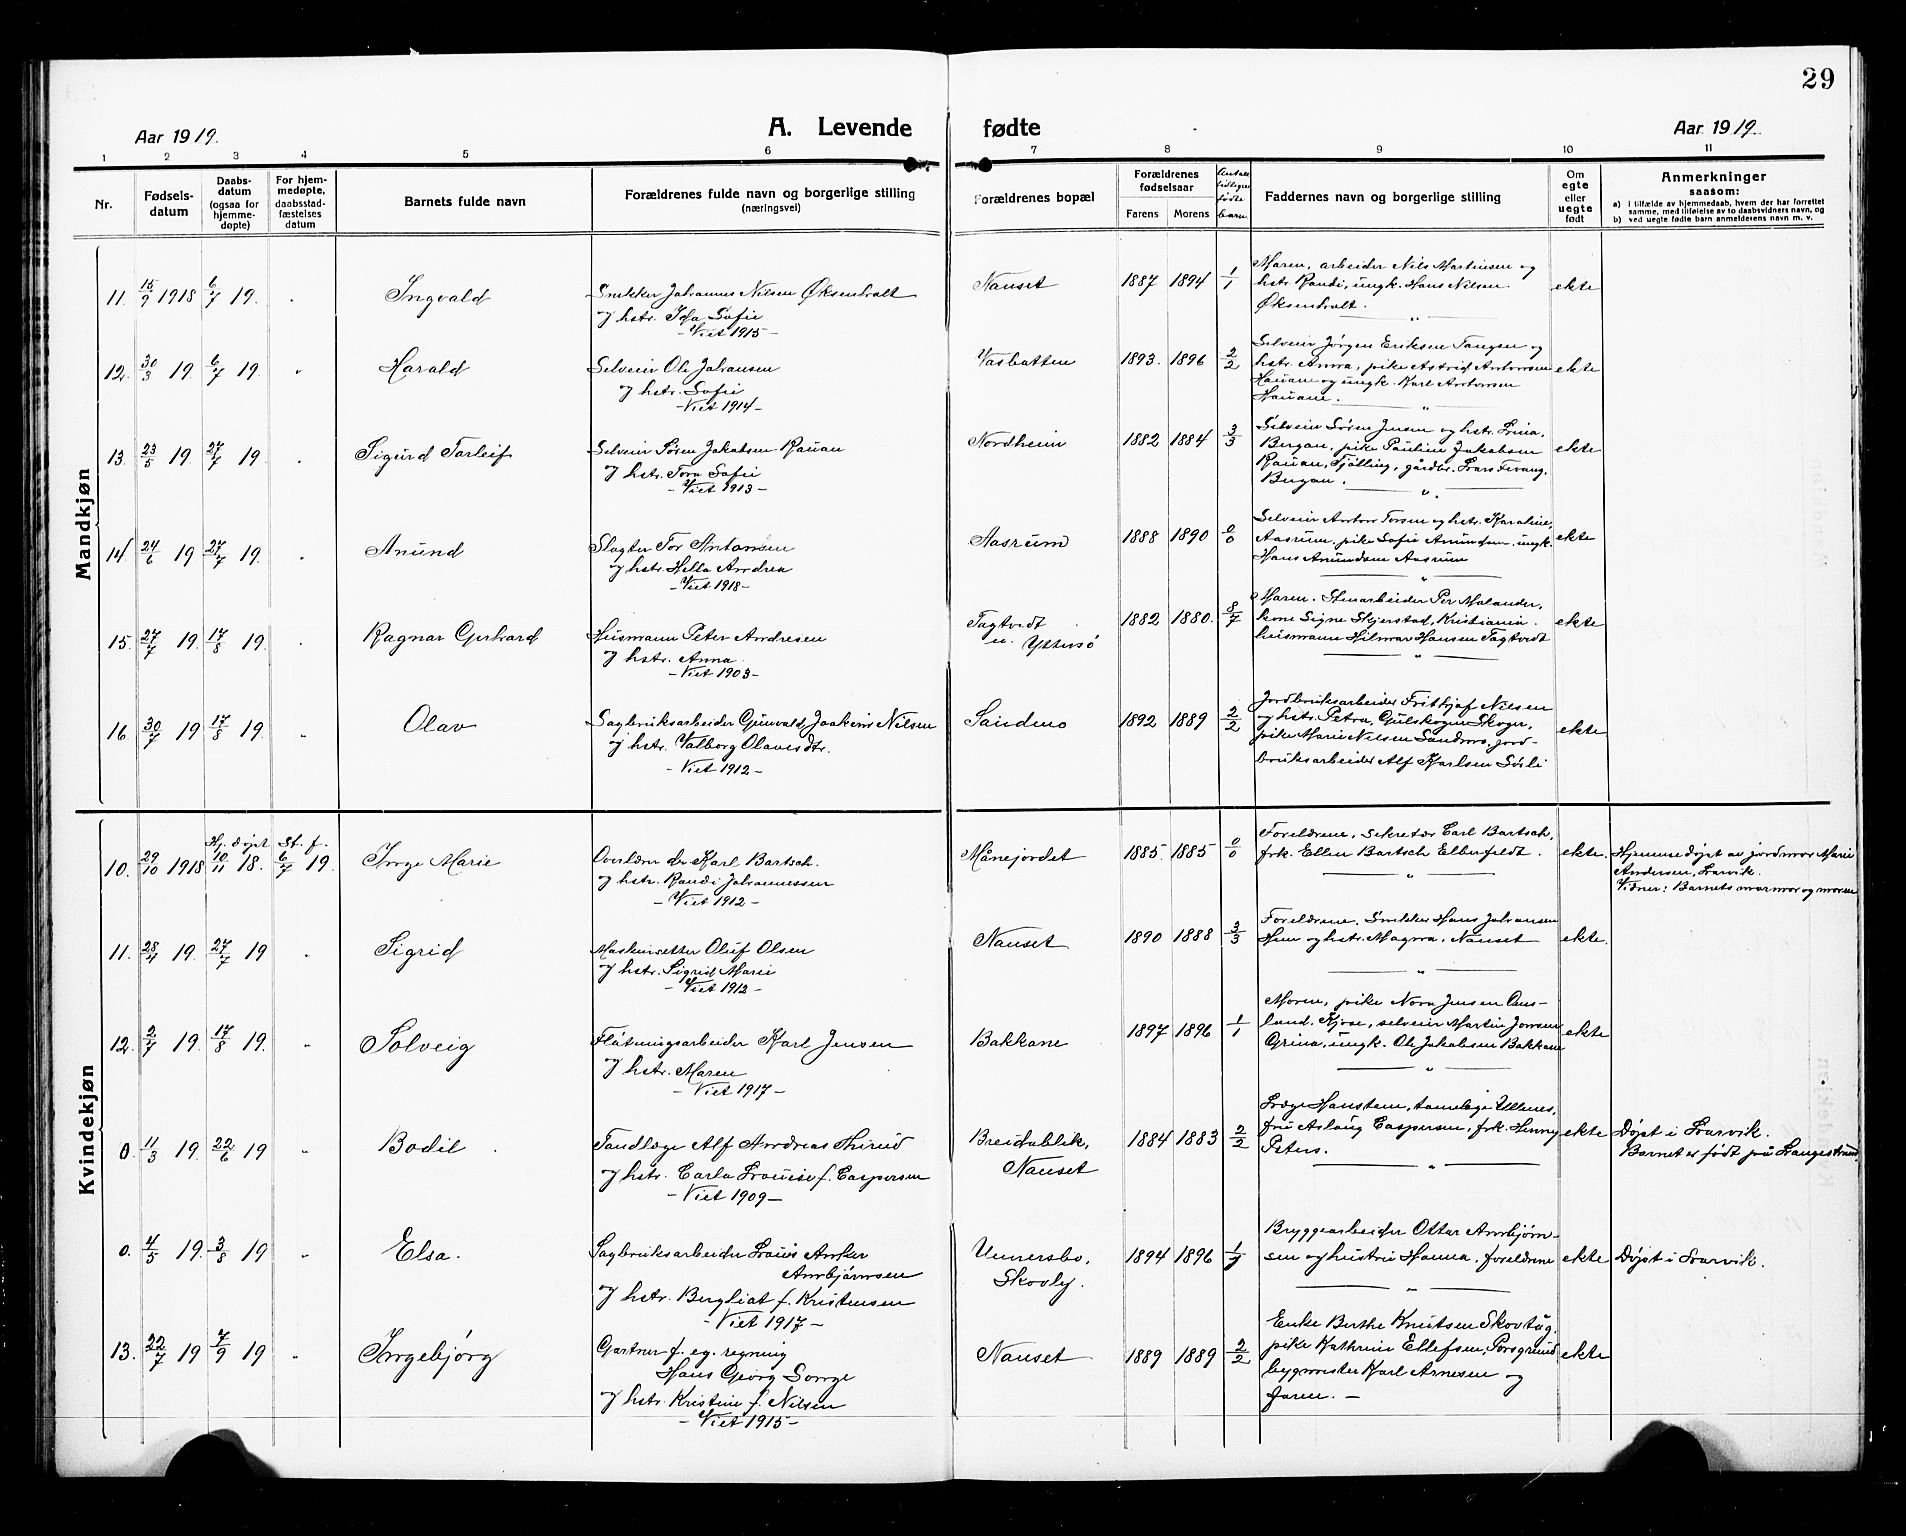 29
Aar 1919.
A. Levende
fødte
Aar 1919.
1 2 3 4 5 6 7 8 9 10 11
Nr.
Fødsels-
datum
Daabs-
datum
(ogsaa for
hjemme-
døpte)
For hjem-
medøpte,
daabsstad-
fæstelses
datum
Barnets fulde navn
Forældrenes fulde navn og borgerlige stilling
(næringsvei)
Forældrenes bopæl
Forældrenes
fødselsaar
Farens Morens
Antal
tidligere
fødte
barn.
Faddernes navn og borgerlige stilling
Om
egte
eller
uegte
født
Anmerkninger
saasom:
a) i tilfælde av hjemmedaab, hvem der har forrettet
samme, med tilføielse av to daabsvidners navn, og
b) ved uegte fødte barn anmelderens navn m. v.
Mandkjøn
11. 15/9 1918 6/7 19. " Ingvald
Snekker Johannes Nilsen Øksenholt
og hstr. Ida Sofie
- Viet 1915 -
Nauset 1887 1894 1/1
Moren, arbeider Nils Martinsen og
hstr. Randi, ungk. Hans Nilsen
Øksenholt.
ekte
12. 30/3 19. 6/7 19. " Harald
Selveier Ole Johansen
og hstr. Sofie
- Viet 1914 -
Vasbotten 1893. 1896 2/2
Selveier Jørgen Eriksen Tangen og
hstr. Anna, pike Astrid Antonsen
Hauane og ungk. Karl Antonsen
Hauane.
ekte
13. 23/5 19. 27/7 19. " Sigurd Torleif
Selveier Søren Jakobsen Rauan
og hstr. Tora Sofie
- Viet 1913 -
Nordheim 1882 1884 3/3
Selveier Søren Jensen og hstr. Lina,
Bergan, pike Pauline Jakobsen
Rauan, Tjølling, gårdbr. Lars Fevang,
Bergan.
ekte
14. 24/6 19 27/7 19. " Anund
Slagter Tor Antonsen
og hstr. Hella Andrea
- Viet 1918 -
Aasrum 1888 1890 0/0
Selveier Anton Torsen og hstr. Karoline,
Aasrum, pike Sofie Amundsen, ungk.
Hans Amundsen Aasrum
ekte
15. 27/7 19. 17/8 19. " Ragnar Gerhard
Husmann Peter Andresen
og hstr. Anna.
- Viet 1903 -
Tagtvedt
u. Yttersø
1882 1880. 8/7
Moren. Stenarbeider Per Molander,
kone Signe Skjerstad, Kristiania.
husmann Hilmar Hansen Tagtvedt
ekte.
16. 30/7 19 17/8 19. " Olav
Sagbruksarbeider Gunvald Joakim Nilsen
og hstr. Valborg Olavesdtr.
- Viet 1912 -
Sandmo 1892 1889 2/2
Jordbruksarbeider Frithjof Nilsen
og hstr. Petra, Gulskogen Skoger,
pike Marie Nilsen Sandmo, jord-
bruksarbeider Alf Karlsen Sørli
ekte
Kvindekjøn
Hj. døpt St. f.
10. 29/10 1918 10/11 18. 6/7 19. Inge Marie
Overlærer dr. Karl Bartsch.
og hstr. Randi Johannessen
- Viet 1912 -
Månejordet 1885 1885 0/0
Foreldrene, sekretær Carl Bartsch,
frk. Ellen Bartsch Elberfeldt.
ekte.
Hjemmedøpt av jordmor Marie
Andersen, Larvik.
Vidner: Barnets mormor og moren
11. 28/4 19. 27/7 19 " Sigrid
Maskinsetter Oluf Olsen
og hstr. Sigrid Marie
- Viet 1912 -
Nauset 1890 1888 3/3
Foreldrene. Snekker Hans Johansen
Hem og hstr. Magna, Nauset
ekte.
12. 2/7 19. 17/8 19. " Solveig
Fløtningsarbeider Karl Jensen
og hstr. Maren
- Viet 1917 -
Bakkane 1897 1896 1/1
Moren, pike Nora Jensen Aus-
land, Kjose, selveier Martin Jonsen
Grina, ungk. Ole Jakobsen Bakkane
ekte
0. 11/3 19. 22/6 19 " Bodil.
Tandlæge Alf Andreas Thirud
og hstr. Carla Louise f. Caspersen
- Viet 1909 -
Breidablik,
Nauset
1884 1883 2/2
Læge Hanstein, tannlæge Ullnes,
frue Aslaug Caspersen, frk. Henny
Peters.
ekte
Døpt i Larvik.
Barnet er født på Langestrand
0. 4/5 19. 3/8 19 " Elsa.
Sagbruksarbeider Louis Anker
Arnbjørnsen
og hstr. Bergliot f. Kristensen
- Viet 1917 -
Unnersbo,
Skovly.
1894 1896
Bryggearbeider Ottar Arnbjørn-
sen og hustru Hanna, foreldrene
ekte
Døpt i Larvik.
13. 22/7 19 7/9 19 " Ingebjørg
Gartner f. eg. regning
Hans Georg Songe
og hstr. Kristine f. Nilsen
- Viet 1915 -
Nauset 1889 1889 2/2
Enke Berthe Knutsen Skovtug,
pike Kathrine Ellefsen, Porsgrund
bygmester Karl Arnesen og
faren. -
ekte